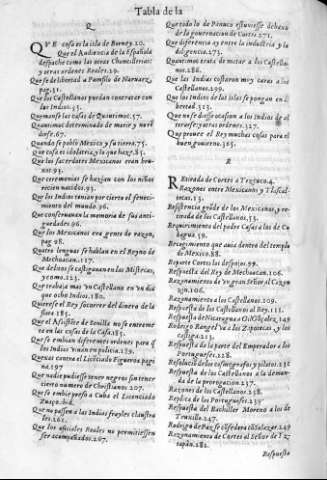 Tabla de la
Q
QVE cosa es la isla de Borney.20.
Que el Audiencia de la Española
despache como las otras Chancillerias:
y otras ordenes Reales.29.
Que se de libertad a Pamfilo de Naruaez,
pag.31.
Que los Castellanos puedan contratar con
las Indias.35.
Queman se las casas de Quatimoz.57.
Quatimoz determinado de morir y no re
dirse.67.
Quando se poblo Mexico y su tierra.75.
Que cosa es idolatria y lo que haze.85.
Que los sacerdotes Mexicanos eran bru
xos.92.
Que ceremonias se hazian con los niños
rezien nacidos.93.
Que los Indios tenian por cierto el feneci-
miento del mundo.96.
Que conseruauan la memoria de sus anti-
guedades.96.
Que los Mexicanos era gente de razon,
pag.98.
Quatro lenguas se hablan en el Reyno de
Mechoacan.117.
Que delitos se castigauan en las
y como.123.
Que trabaja mas vn Castellano en vn dia
que ocho Indios.180.
Quiere se el Rey socorrer del dinero de la
flota.185.
Que el Assistente de Seuille no se entreme
ta en las cosas de la Casa.185.
Que se embian diferentes ordenes para q
los Indios viuan en policia.189.
Quexas contra el Licēciado Figueroa pagi
na.197
Que nadie pudiesse tener negros sin tener
cierto numero de Christianos.207.
Que se embie preso a Cuba el Licenciado
Zuaço.
Que no passen a las Indias frayles claustra
les.261.
Que los oficiales Reales no permitiessen
ser acompañados.267.
Que todo lo de Panuco estuuiesse debaxo
de la gouernacion de Cortes.271.
Que diferencia ay entre la industria y la
diligencia.273.
Quatimoz trata de matar a los Castella-
nos.286.
Que las Indias costaron muy caras a los
Castellanos.299.
Que los Indios de las islas se pongan en li
bertad.323.
Que no se diesse ocasion a los Indios de al
terarse y otras ordenes.327.
Que prouee el Rey muchas cosas para el
buen gouierno.365.
R
REtirada de Cortes a Tezcuco.4.
Razones entre Mexicanos y Tlascal-
tecas.13.
Resistencia grāde de los Mexicanos, y re-
tirada de los Castellanos.15.
Requirimiento del padre Casas a los de Cu
bagua.39.
Recogimiento que auia dentro del templo
de Mexico.88.
Reparte Cortes los despojos.99.
Respuesta del Rey de Mechoacan.106.
Razonamiento de vn gran Señor el Cazon
zin.106.
Razonamiento a los Castellanos.209.
Respuesta de los Castellanos al Rey.111.
Respuesta de Nicaragua a Gil Gōçalez.149
Rodrigo Rangel va a los Zapotecas, y los
castiga.213.
Respuesta de la parte del Emperador a los
Portugueses.228.
Resolucion de los cosmografos y pilotos.232
Respuesta de los Castellanos a la deman-
da de la prorogacion.237.
Razones de los Castellanos.238.
Replica de los Portugueses.235
Respuesta del Bachiller Moreno a los de
Truxillo.247.
Rodrigo de Paz se cōfedera cō Salazar.249
Razonamiento de Cortes al Señor de Iz
tapan.282.
Respuesta